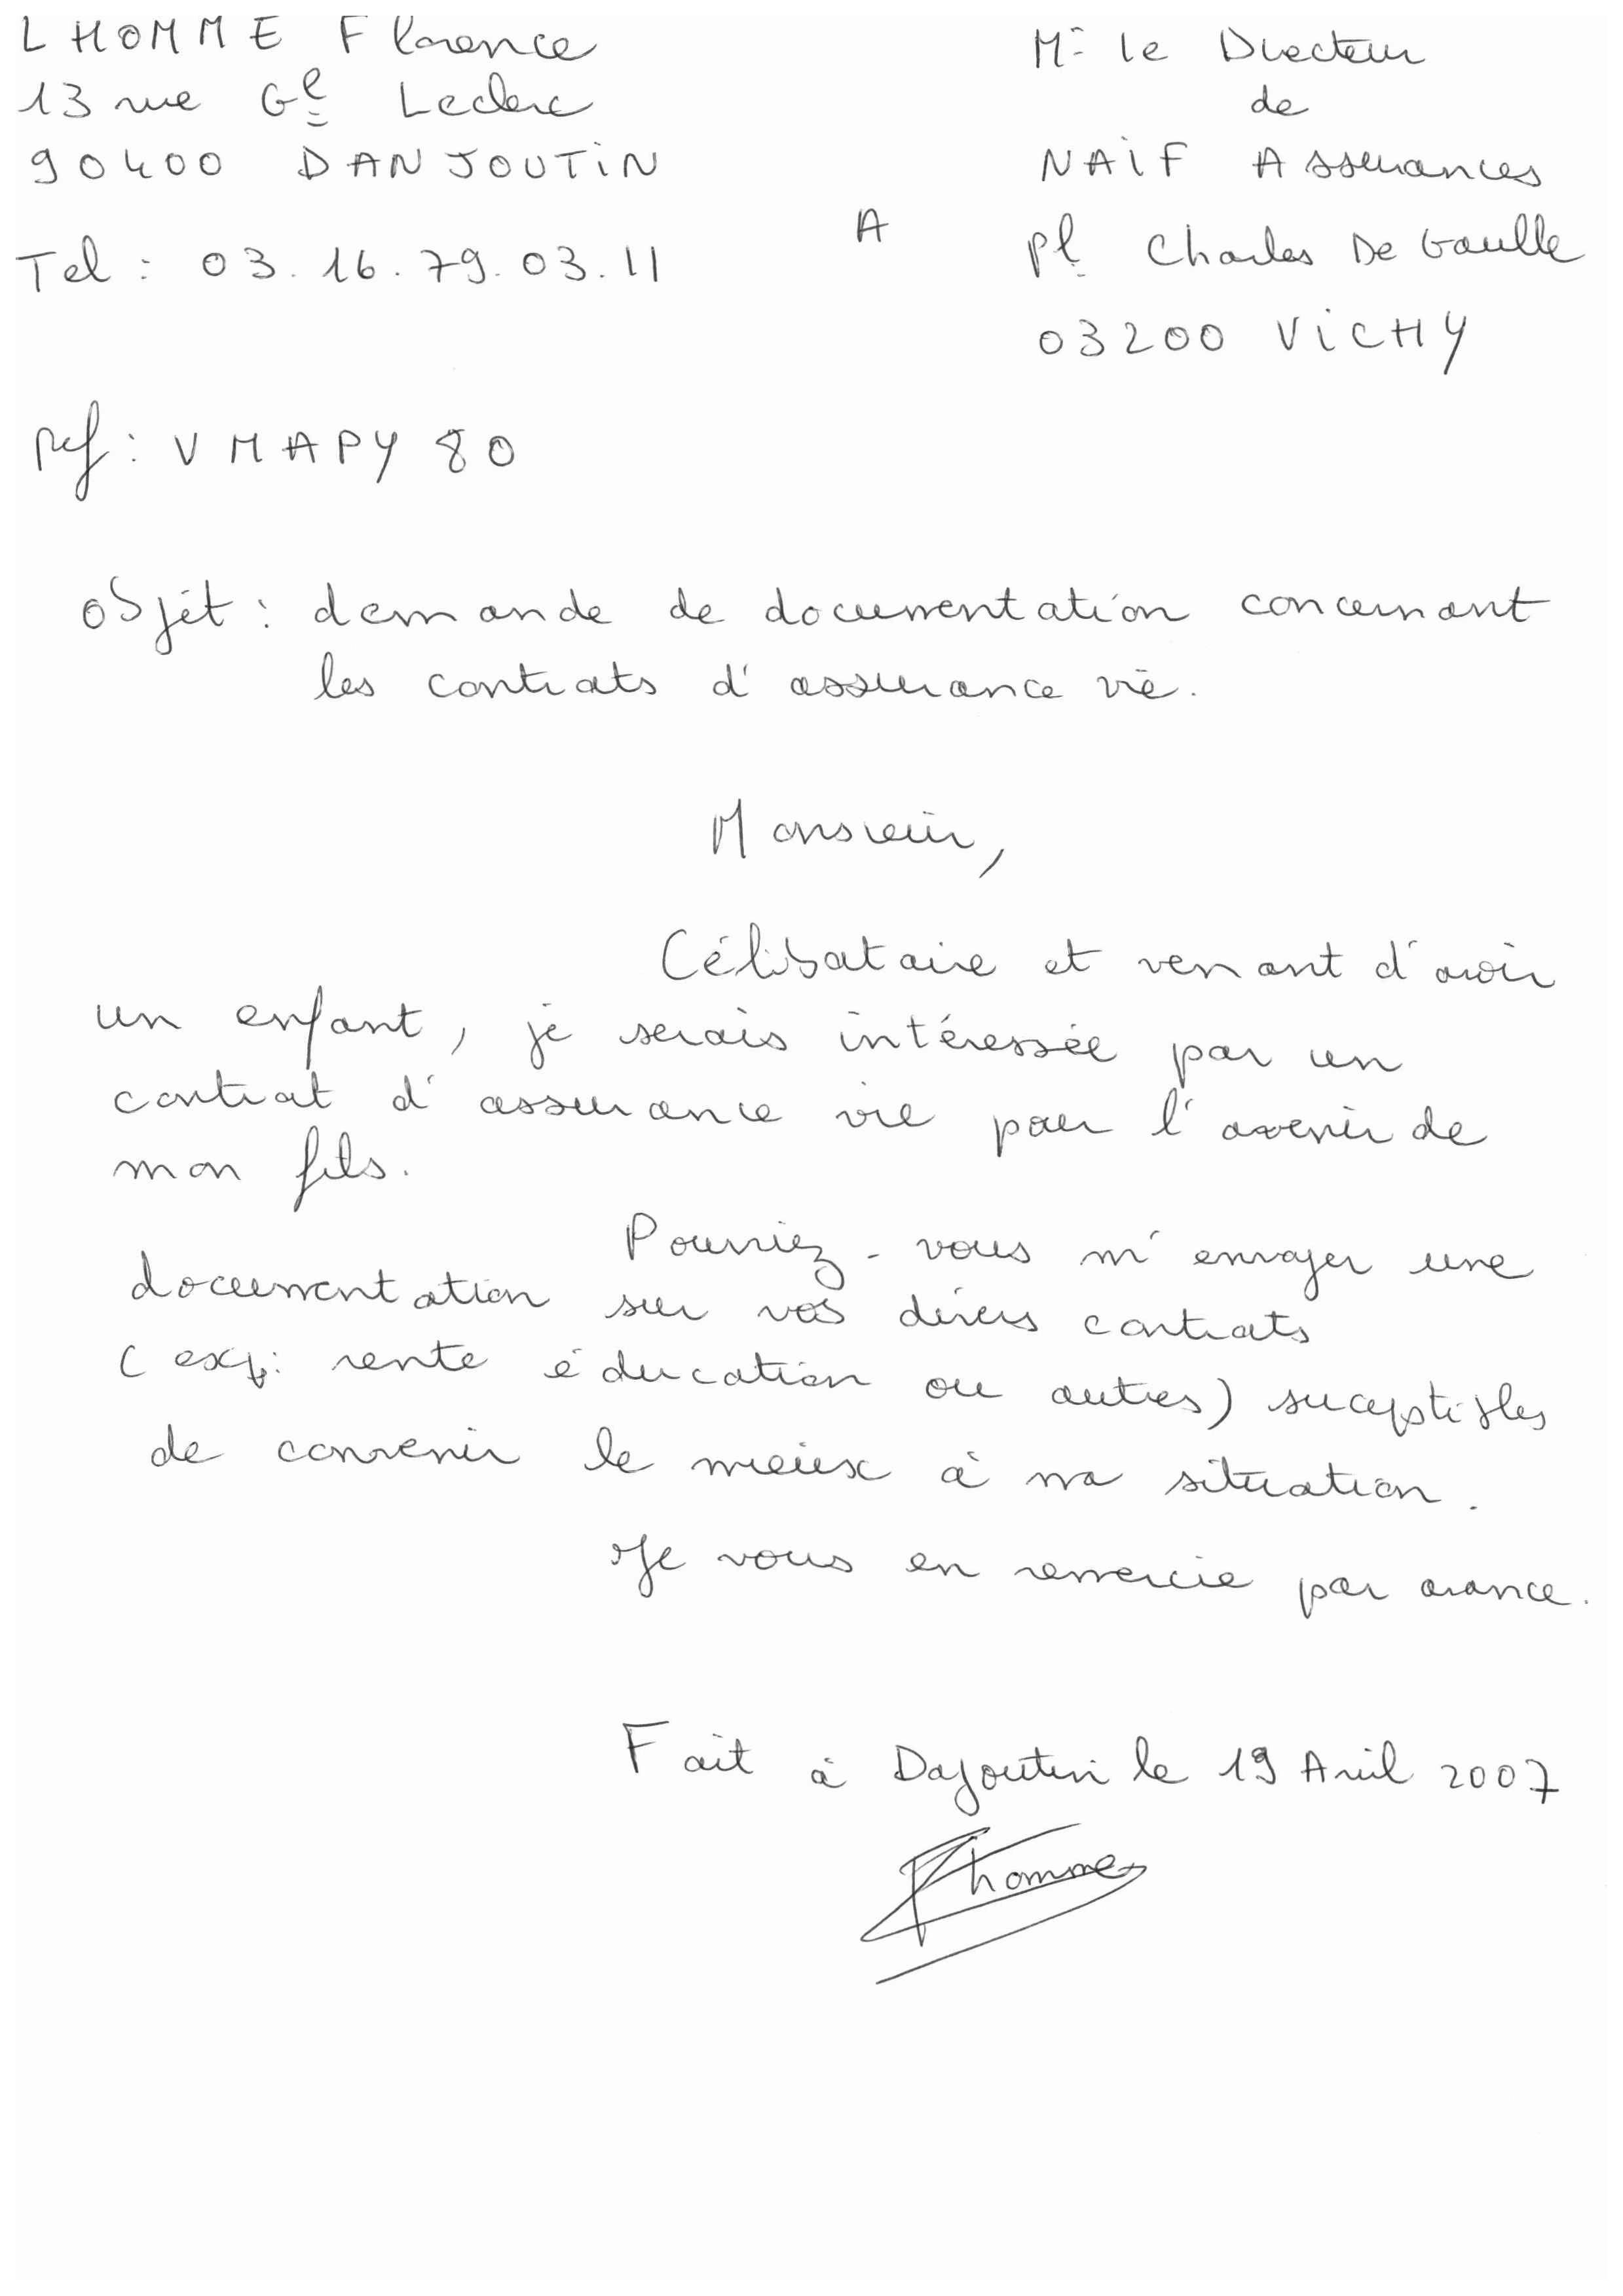 LHOMME Florence
13 rue Gel Leclerc
90400 DANJOUTIN
Tel : 03.16.79.03.11
Mr le Directeur
de
NAIF Assurances
A
Pl. Charles De Gaulle
03200 VICHY
Ref : VMAPY 80
Objet : demande de documentation concernant
les contrats d'assurance vie.
Monsieur,
Célibataire et venant d'avoir
un enfant, je serais intéressée par un
contrat d'assurance vie pour l'avenir de
mon fils.
Pourriez-vous m'envoyer une
documentation sur vos divers contrats
(exp: rente éducation ou autres) suceptibles
de convenir le mieux à ma situation.
Je vous en remercie par avance.
Fait à Dajoutin le 19 Avril 2007
Lhomme